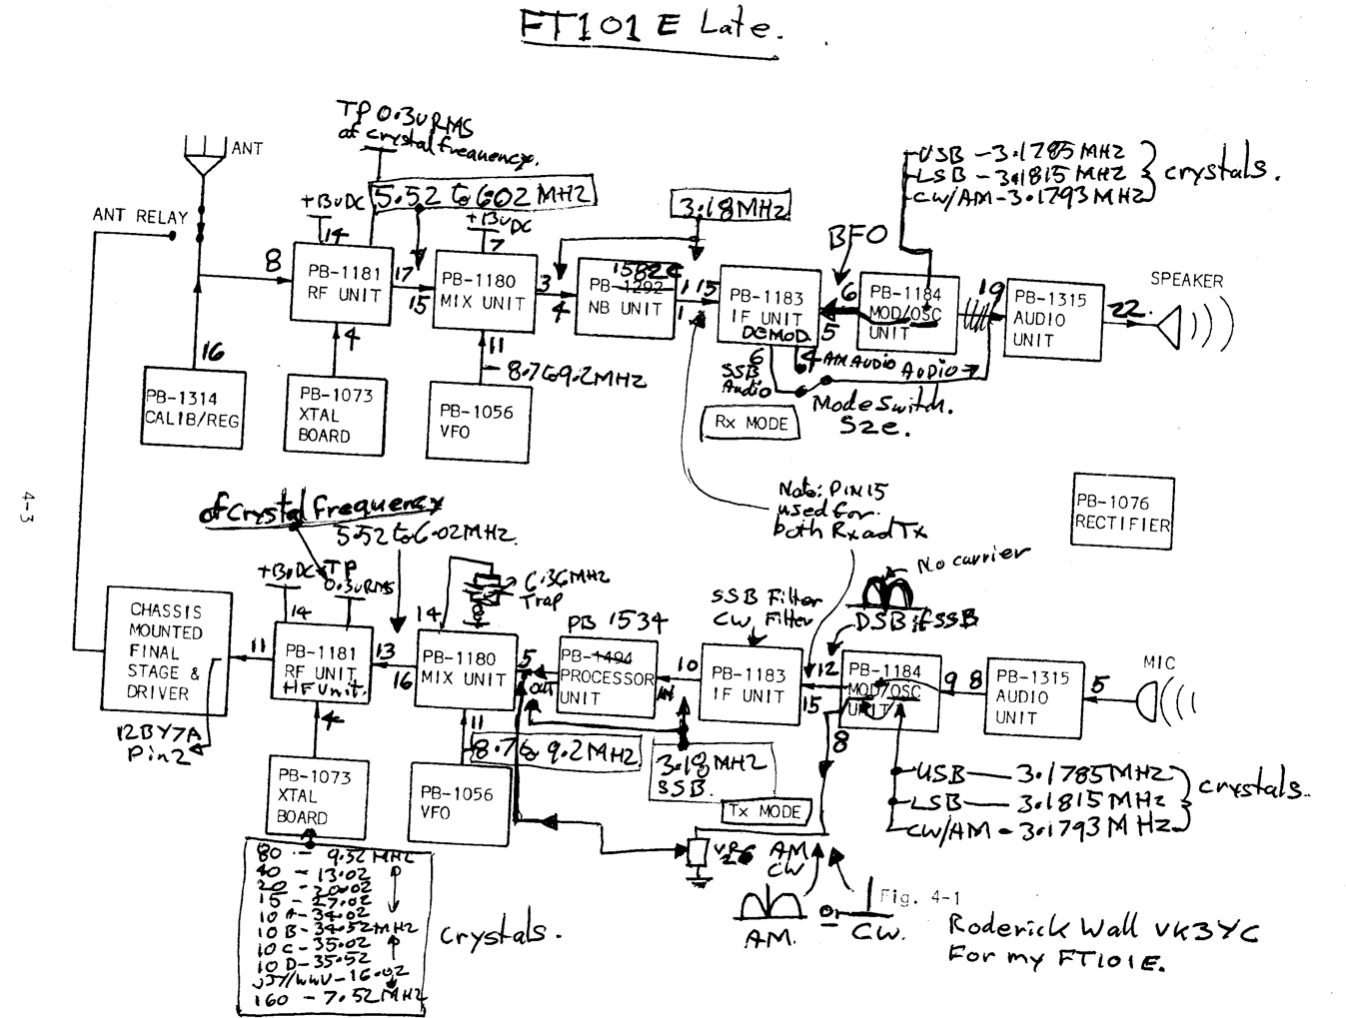 FT101 E Late.
TP 0.3v RMS
of crystal frequency.
ANT
ANT RELAY
+13vDC
14
5.52 to 6.02 MHZ
+13vDC
7
3.18MHZ
BFO
USB - 3.1785 MHZ
LSB - 3.1815 MHZ
CW/AM - 3.1793 MHZ
crystals.
8
PB-1181
RF UNIT
17
15
PB-1180
MIX UNIT
3
4
1582C
PB-1292
NB UNIT
1
1
15
PB-1183
IF UNIT
DEMOD
6
5
PB-1184
MOD/OSC
UNIT
19
PB-1315
AUDIO
UNIT
22
SPEAKER
16
4
11
8.7 to 9.2 MHZ
6
SSB
Audio
4
AM AUDIO
AUDIO
Mode Switch.
S2e.
PB-1314
CALIB/REG
PB-1073
XTAL
BOARD
PB-1056
VFO
Rx MODE
4-3
Note: PIN 15
used for
both Rx ad Tx
PB-1076
RECTIFIER
of crystal frequency
5.52 to 6.02 MHZ.
+13vDC
14
TP
0.3v RMS
14
6.36MHZ
Trap
PB 1534
SSB Filter
CW Filter
No carrier
DSB if SSB
MIC
CHASSIS
MOUNTED
FINAL
STAGE &
DRIVER
11
PB-1181
RF UNIT
HF Unit.
13
16
PB-1180
MIX UNIT
5
OUT
PB-1494
PROCESSOR
UNIT
IN
10
PB-1183
IF UNIT
12
15
PB-1184
MOD/OSC
UNIT
9
8
PB-1315
AUDIO
UNIT
5
12BY7A
Pin 2
4
11
8.7 to 9.2 MHZ
3.18 MHZ
SSB.
8
PB-1073
XTAL
BOARD
PB-1056
VFO
Tx MODE
USB - 3.1785 MHZ
LSB - 3.1815 MHZ
CW/AM - 3.1793 MHZ
crystals.
80 - 9.52 MHZ
40 - 13.02
20 - 20.02
15 - 27.02
10 A - 34.02
10 B - 34.52 MHZ
10 C - 35.02
10 D - 35.52
JJY/WWV - 16.02
160 - 7.52 MHZ
crystals.
VR6
AM
CW
AM.
or
CW.
Fig. 4-1
Roderick Wall VK3YC
For my FT101E.